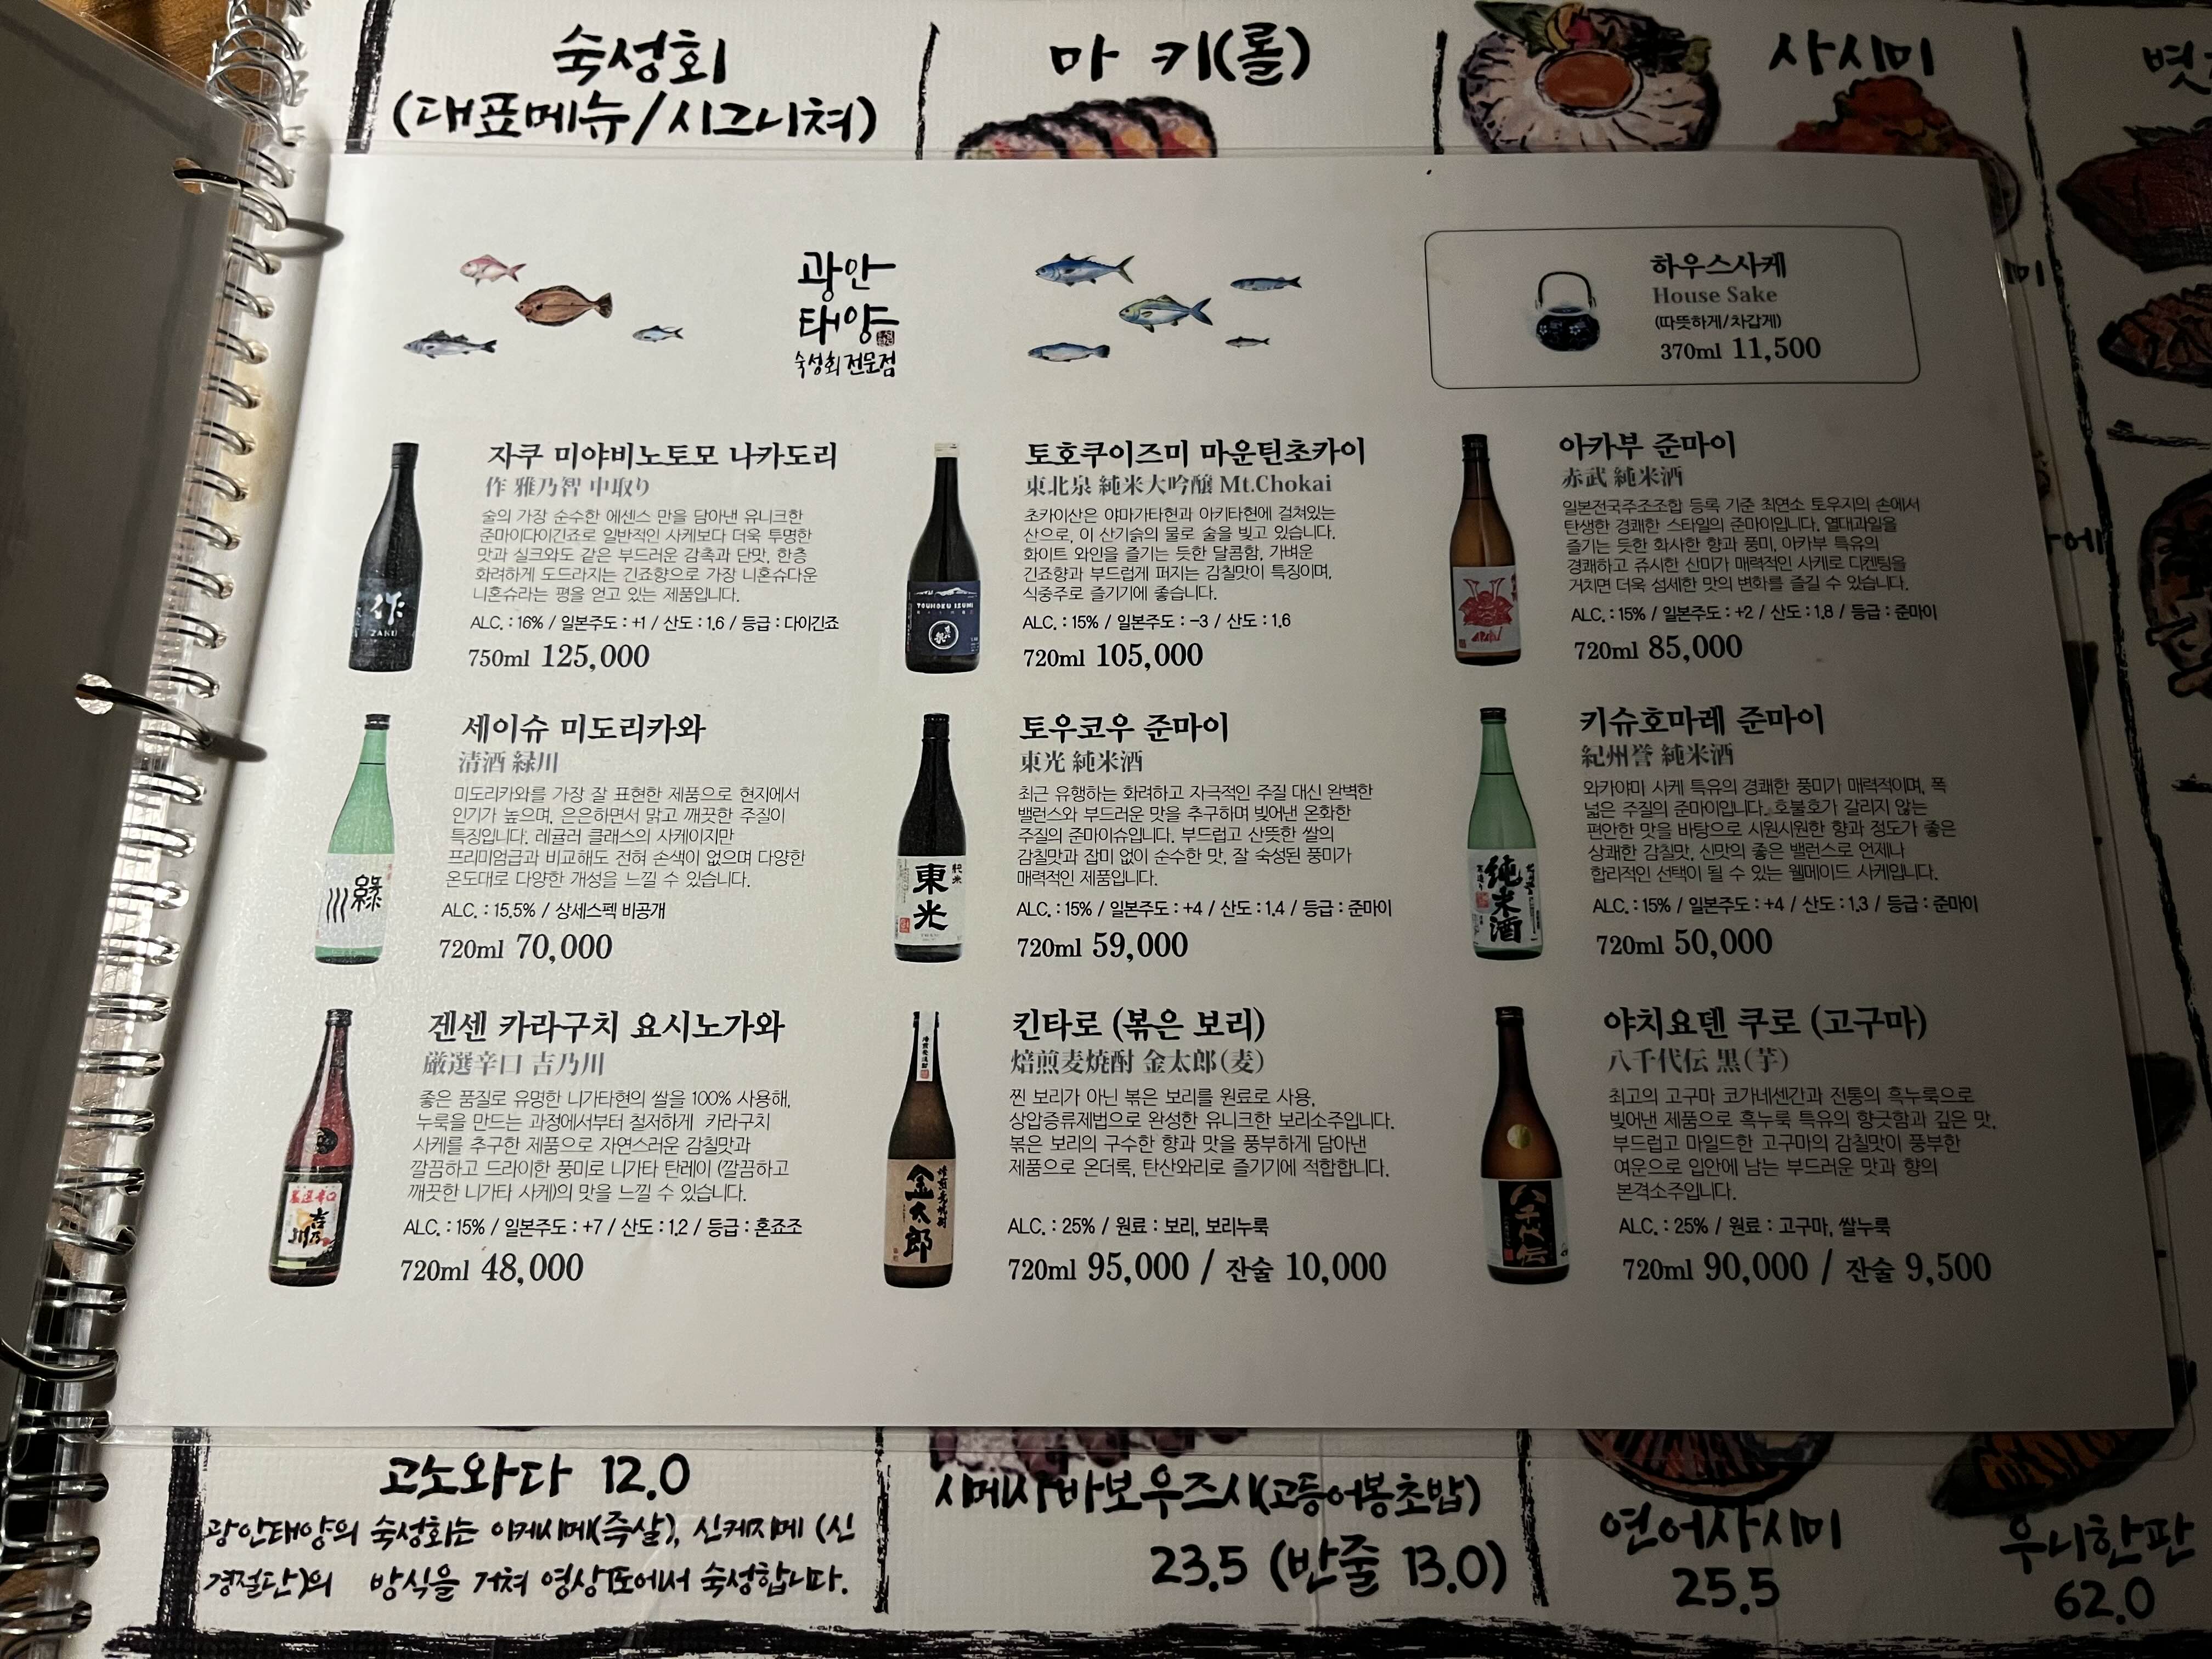 숙성회
(대표메뉴/시그니쳐)
마 키(롤)
사시미
광안
태양
숙성회 전문점
하우스사케
House Sake
(따뜻하게/차갑게)
370ml 11,500
자쿠 미야비노토모 나카도리
作 雅乃智 中取り
술의 가장 순수한 에센스 만을 담아낸 유니크한
준마이다이긴죠로 일반적인 사케보다 더욱 투명한
맛과 실크와도 같은 부드러운 감촉과 단맛, 한층
화려하게 도드라지는 긴죠향으로 가장 니혼슈다운
니혼슈라는 평을 얻고 있는 제품입니다.
ALC. : 16% / 일본주도 : +1 / 산도 : 1.6 / 등급 : 다이긴죠
750ml 125,000
作
ZAKU
토호쿠이즈미 마운틴초카이
東北泉 純米大吟醸 Mt.Chokai
초카이산은 야마가타현과 아키타현에 걸쳐있는
산으로, 이 산기슭의 물로 술을 빚고 있습니다.
화이트 와인을 즐기는 듯한 달콤함, 가벼운
긴죠향과 부드럽게 퍼지는 감칠맛이 특징이며,
식중주로 즐기기에 좋습니다.
ALC. : 15% / 일본주도 : -3 / 산도 : 1.6
720ml 105,000
TOUHOKU IZUMI
아카부 준마이
赤武 純米酒
일본전국주조조합 등록 기준 최연소 토우지의 손에서
탄생한 경쾌한 스타일의 준마이입니다. 열대과일을
즐기는 듯한 화사한 향과 풍미, 아카부 특유의
경쾌하고 쥬시한 산미가 매력적인 사케로 디켄팅을
거치면 더욱 섬세한 맛의 변화를 즐길 수 있습니다.
ALC. : 15% / 일본주도 : +2 / 산도 : 1.8 / 등급 : 준마이
720ml 85,000
세이슈 미도리카와
清酒 緑川
미도리카와를 가장 잘 표현한 제품으로 현지에서
인기가 높으며, 은은하면서 맑고 깨끗한 주질이
특징입니다. 레귤러 클래스의 사케이지만
프리미엄급과 비교해도 전혀 손색이 없으며 다양한
온도대로 다양한 개성을 느낄 수 있습니다.
ALC. : 15.5% / 상세스펙 비공개
720ml 70,000
緑川
토우코우 준마이
東光 純米酒
최근 유행하는 화려하고 자극적인 주질 대신 완벽한
밸런스와 부드러운 맛을 추구하며 빚어낸 온화한
주질의 준마이슈입니다. 부드럽고 산뜻한 쌀의
감칠맛과 잡미 없이 순수한 맛, 잘 숙성된 풍미가
매력적인 제품입니다.
ALC. : 15% / 일본주도 : +4 / 산도 : 1.4 / 등급 : 준마이
720ml 59,000
純米
東光
키슈호마레 준마이
紀州誉 純米酒
와카야마 사케 특유의 경쾌한 풍미가 매력적이며, 폭
넓은 주질의 준마이입니다. 호불호가 갈리지 않는
편안한 맛을 바탕으로 시원시원한 향과 정도가 좋은
상쾌한 감칠맛, 신맛의 좋은 밸런스로 언제나
합리적인 선택이 될 수 있는 웰메이드 사케입니다.
ALC. : 15% / 일본주도 : +4 / 산도 : 1.3 / 등급 : 준마이
720ml 50,000
純米酒
겐센 카라구치 요시노가와
厳選辛口 吉乃川
좋은 품질로 유명한 니가타현의 쌀을 100% 사용해,
누룩을 만드는 과정에서부터 철저하게 카라구치
사케를 추구한 제품으로 자연스러운 감칠맛과
깔끔하고 드라이한 풍미로 니가타 탄레이 (깔끔하고
깨끗한 니가타 사케)의 맛을 느낄 수 있습니다.
ALC. : 15% / 일본주도 : +7 / 산도 : 1.2 / 등급 : 혼죠조
720ml 48,000
厳選辛口
吉乃川
킨타로 (볶은 보리)
焙煎麦焼酎 金太郎(麦)
찐 보리가 아닌 볶은 보리를 원료로 사용,
상압증류제법으로 완성한 유니크한 보리소주입니다.
볶은 보리의 구수한 향과 맛을 풍부하게 담아낸
제품으로 온더록, 탄산와리로 즐기기에 적합합니다.
ALC. : 25% / 원료 : 보리, 보리누룩
720ml 95,000 / 잔술 10,000
焙煎麦焼酎
金太郎
야치요덴 쿠로 (고구마)
八千代伝 黒(芋)
최고의 고구마 코가네센간과 전통의 흑누룩으로
빚어낸 제품으로 흑누룩 특유의 향긋함과 깊은 맛,
부드럽고 마일드한 고구마의 감칠맛이 풍부한
여운으로 입안에 남는 부드러운 맛과 향의
본격소주입니다.
ALC. : 25% / 원료 : 고구마, 쌀누룩
720ml 90,000 / 잔술 9,500
八千代伝
고노와다 12.0
광안태양의 숙성회는 이케시메(즉살), 신케지메 (신
경절단)의 방식을 거쳐 영상1도에서 숙성합니다.
시메사바보우즈시(고등어봉초밥)
23.5 (반줄 13.0)
연어사시미
25.5
우니한판
62.0